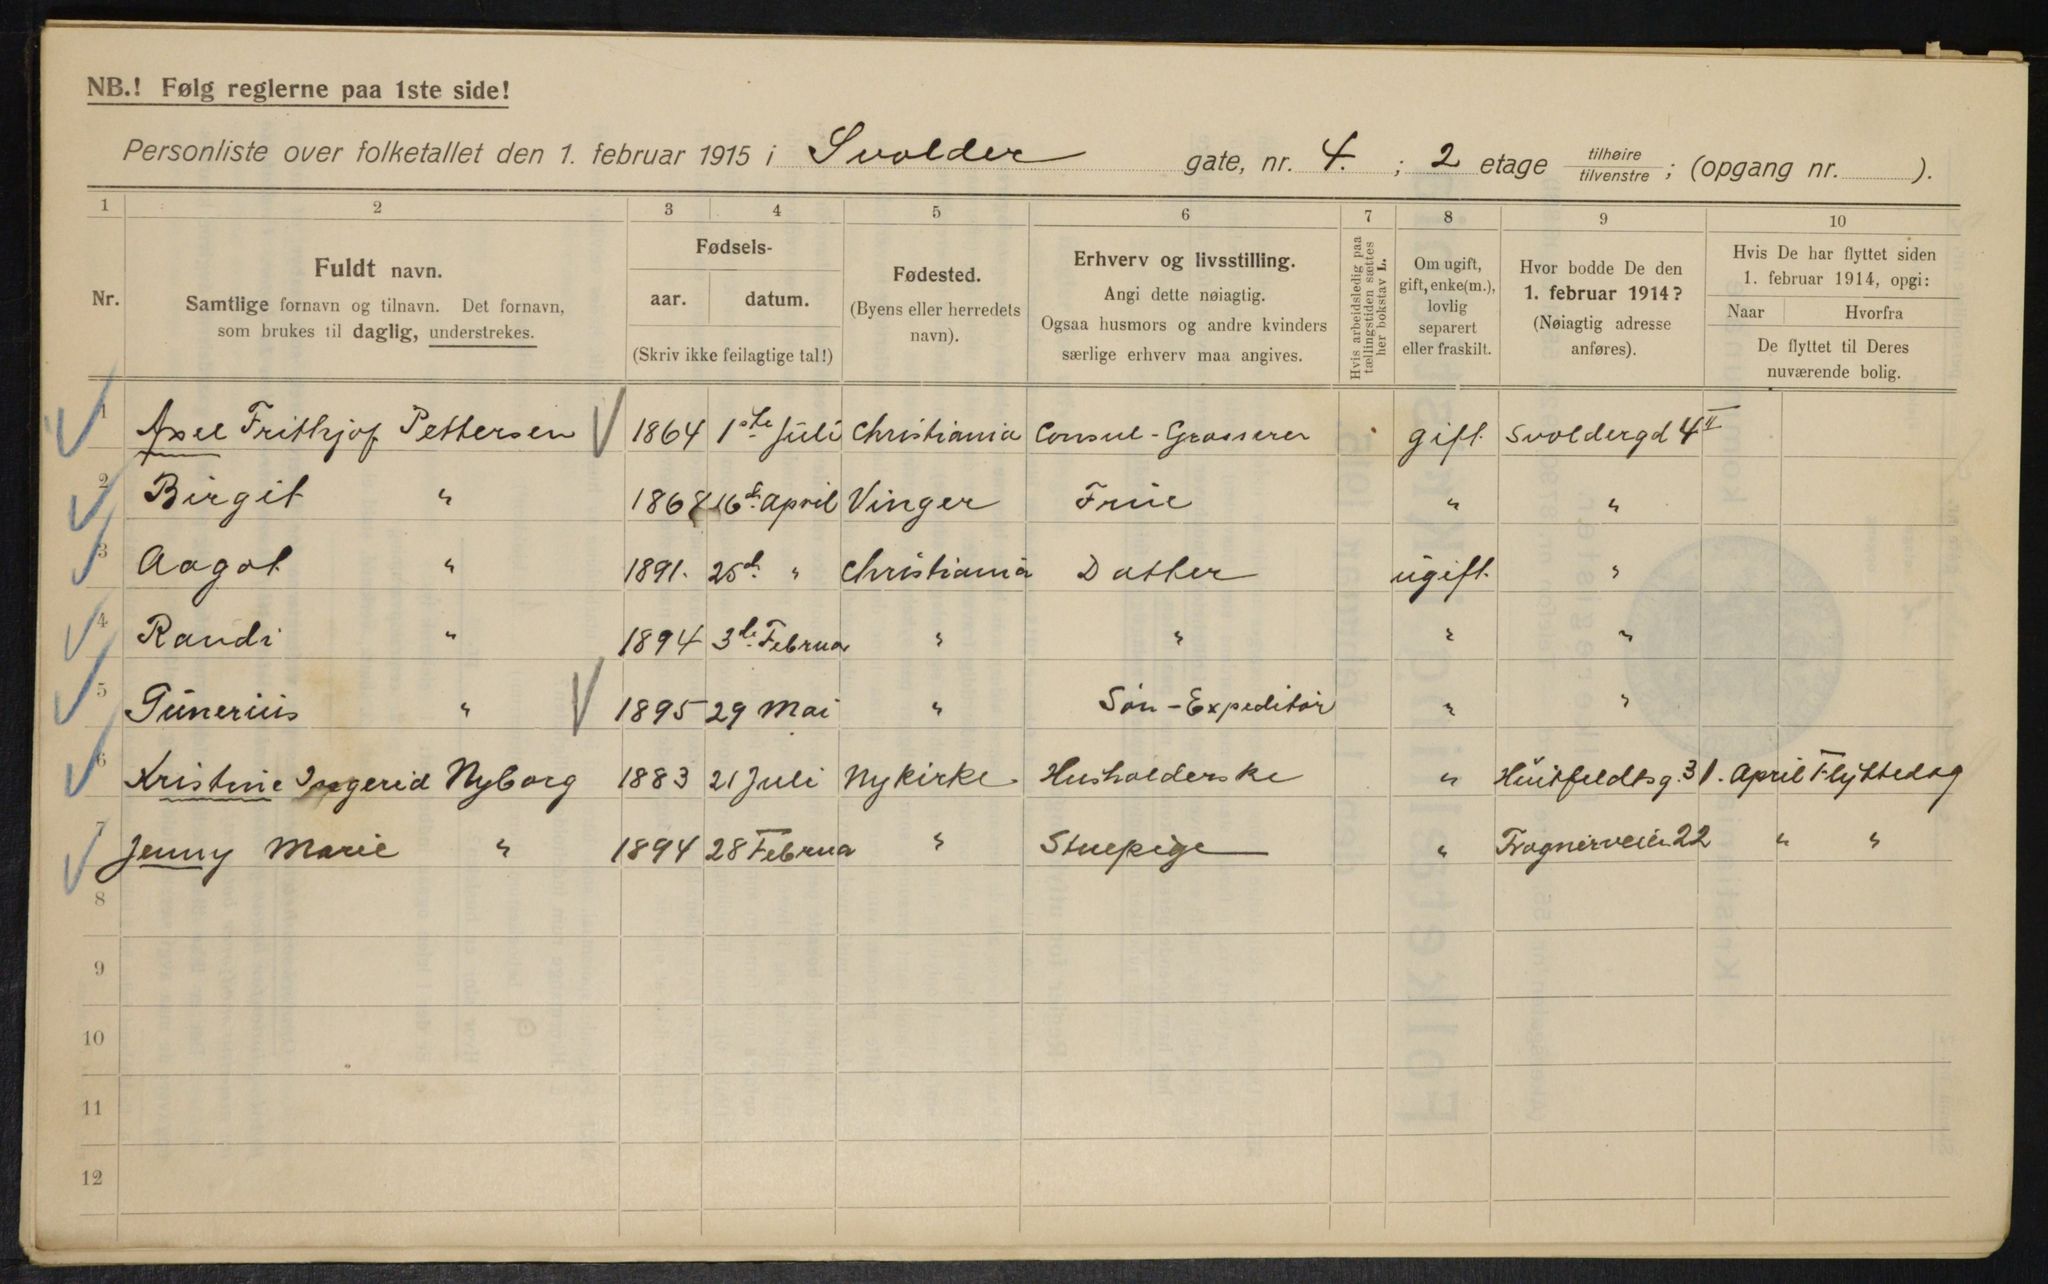 NB.! Følg reglerne paa 1ste side!
Personliste over folketallet den 1. februar 1915 i Svolder gate, nr. 4. ; 2 etage tilhøire tilvenstre ; (opgang nr. ).
1 2 3 4 5 6 7 8 9 10
Nr.
Fuldt navn.
Samtlige fornavn og tilnavn. Det fornavn,
som brukes til daglig, understrekes.
Fødsels-
aar. datum.
(Skriv ikke feilagtige tal!)
Fødested.
(Byens eller herredets
navn).
Erhverv og livsstilling.
Angi dette nøiagtig.
Ogsaa husmors og andre kvinders
særlige erhverv maa angives.
Hvis arbeidsledig paa
tællingstiden sættes
her bokstav L.
Om ugift,
gift, enke(m.),
lovlig
separert
eller fraskilt.
Hvor bodde De den
1. februar 1914?
(Nøiagtig adresse
anføres).
Hvis De har flyttet siden
1. februar 1914, opgi:
Naar Hvorfra
De flyttet til Deres
nuværende bolig.
1 Axel Frithjof Pettersen 1864 1ste Juli Christiania Consul - Grosserer gift Svoldergd 4 II
2 Birgit " 1868 16d. April Vinger Frue " "
3 Aagot " 1891. 25d. " Christiania Datter ugift. "
4 Randi " 1894 3de Februa " " " "
5 Günerius " 1895 29 Mai " Sön - Expeditör " "
6 Kristine Ingerid Nyborg 1883 21 Juli Nykirke Husholderske " Huitfeldtsg. 31. April Flyttedag
7 Jenny Marie " 1894 28 Februa " Stuepige " Frognerveien 22 " "
8
9
10
11
12